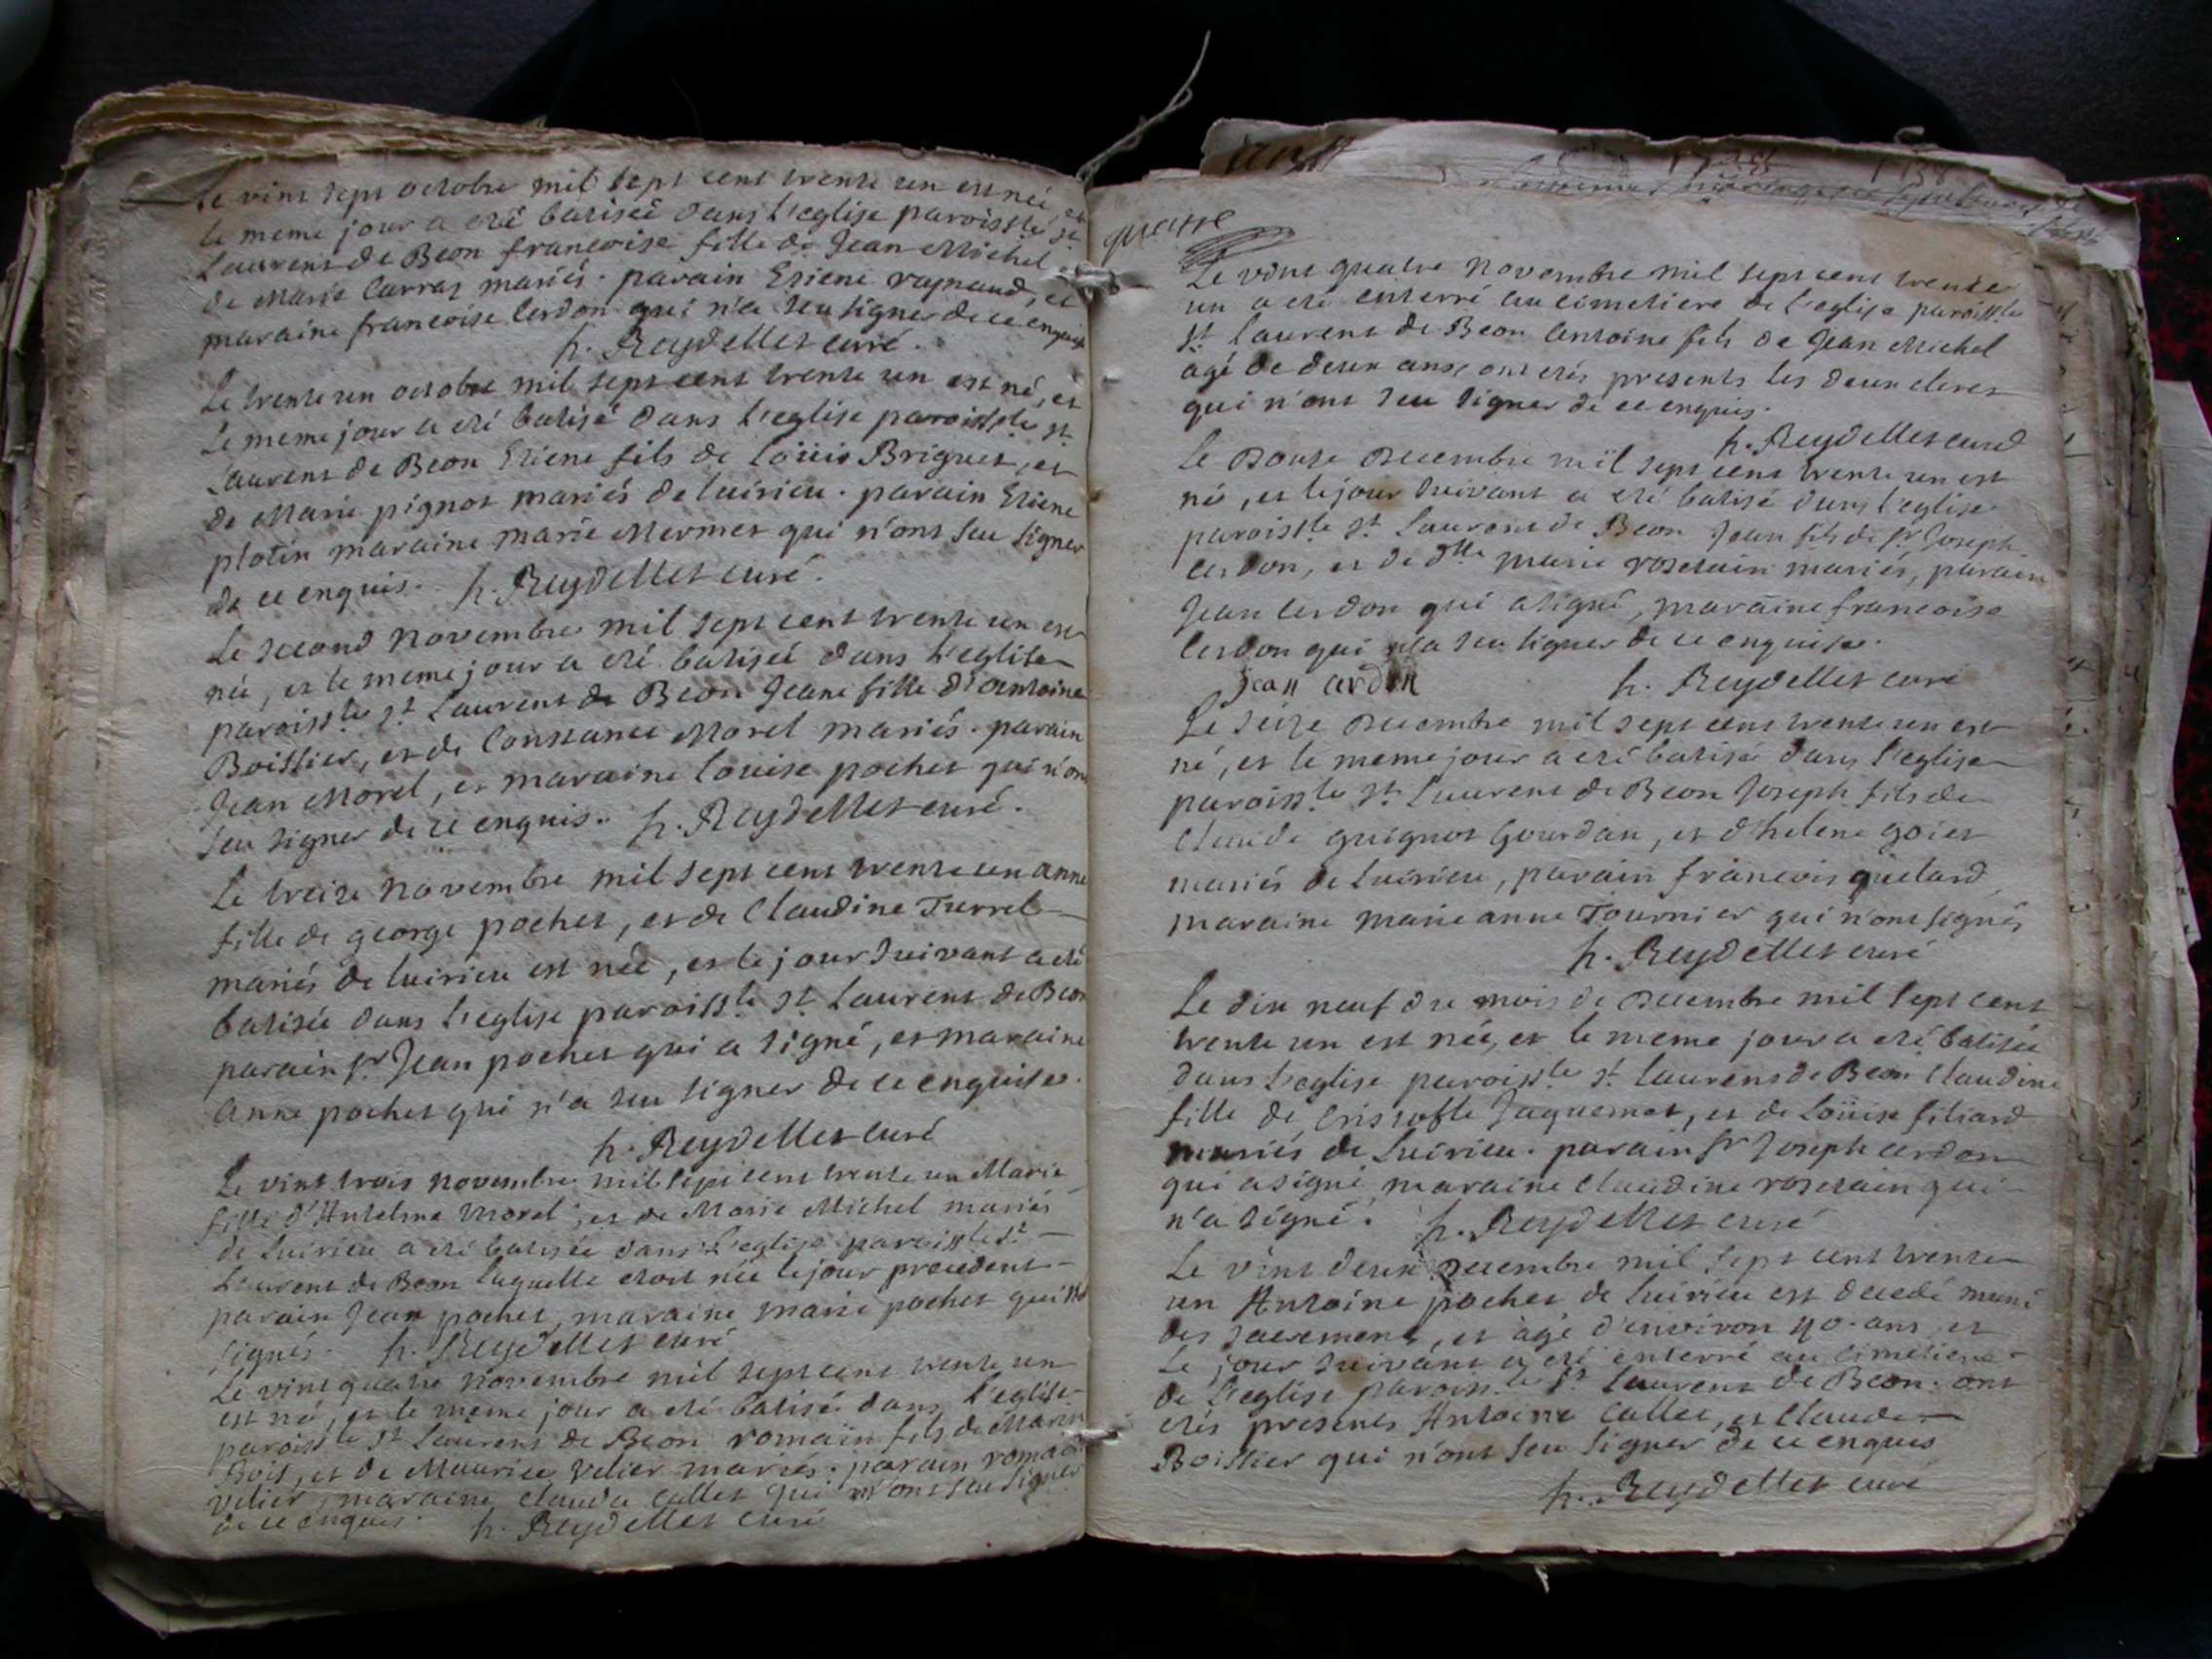 Le vint sept octobre mil sept cent trente un est née, et
le meme jour a eté batiseé dans l'eglise paroissle st
Laurent de Beon francoise fille de Jean Michel
de Marie Carraz mariés. parain Etiene raynaud, et
maraine francoise Cerdon qui n'a seu signer de ce enquise
h. Reydellet curé.
Le trente un octobre mil sept cent trente un est né, et
le meme jour a eté batisé dans l'eglise paroissle st
Laurent de Beon Etiene fils de Loüis Briguet, et
de Marie pignot mariés de luirieu. parain Etiene
plotin maraine marie Mermet qui n'ont seu signer
de ce enquis. h. Reydellet curé.
Le second novembre mil sept cent trente un est
née, et le meme jour a eté batiseé dans l'eglise
paroissle st Laurent de Beon Jeane fille d'antoine
Boissier, et de Constance Morel mariés. parain
Jean Morel, et maraine louise pochet qui n'on
seu signer de ce enquis. h. Reydellet curé.
Le treize novembre mil sept cent trente un anne
fille de george pochet, et de Claudine Turrel
mariés de luirieu est neé, et le jour suivant a eté
batisée dans l'eglise paroissle st Laurent de Beon
parain sr Jean pochet qui a signé, et maraine
anne pochet qui n'a seu signer de ce enquise.
h. Reydellet curé
Le vint trois novembre mil sept cent trente un Marie
fille d'Antelme Morel, et de Marie Michel mariés
de Luirieu a eté batisée dans l'eglise paroissle st
Laurent de Beon laquelle etoit née le jour precedent
parain Jean pochet, maraine marie pochet qui
signés. h. Reydellet curé
Le vint quatre novembre mil sept cent trente un
est né, et le meme jour a eté batisé dans l'eglise
paroissle st Laurent de Beon romain fils de Marin
Bois, et de Maurice velier mariés. parain romain
velier, maraine clauda callet qui n'ont seu signer
de ce enquis. h. Reydellet curé
1738
Le vint quatre novembre mil sept cent trente
un a eté enterré au cimetiere de l'eglise paroissle
st laurent de Beon antoine fils de Jean Michel
agé de deux ans, ont etés presents les deux clercs
qui n'ont seu signer de ce enquis.
h. Reydellet curé
Le Douze Decembre mil sept cent trente un est
né, et le jour suivant a eté batisé dans l'eglise
paroissle st Laurent de Beon Jean fils de sr Joseph
cerdon, et de dlle marie rosetain mariés, parain
Jean cerdon qui a signé, maraine francoise
cerdon qui n'a seu signer de ce enquise.
Jean cerdon h. Reydellet curé
Le seize Decembre mil sept cent trente un est
né, et le meme jour a eté batisé dans l'eglise
paroissle st Laurent de Beon Joseph fils de
Claude guignot Gourdan, et d'helene goiet
mariés de luirieu, parain francois quetard,
maraine marie anne Tournier qui n'ont signés
h. Reydellet curé
Le dix neuf du mois de Decembre mil sept cent
trente un est née, et le meme jour a eté batisée
dans l'eglise paroissle st laurens de Beon Claudine
fille de Cristofle Jaquemet, et de Loüise filiard
mariés de Luirieu. parain sr Joseph cerdon
qui a signé, maraine claudine rosetain qui
n'a signé. h. Reydellet curé
Le vint deux Decembre mil sept cent trente
un Antoine pochet de luirieu est decedé muni
des sacrements, et agé d'environ 40. ans, et
Le jour suivant a eté enterré au cimetiere
de l'eglise paroissle st laurent de Beon. ont
etés presents Antoine Callet, et Claude
Boissier qui n'ont seu signer de ce enquis
h. Reydellet curé